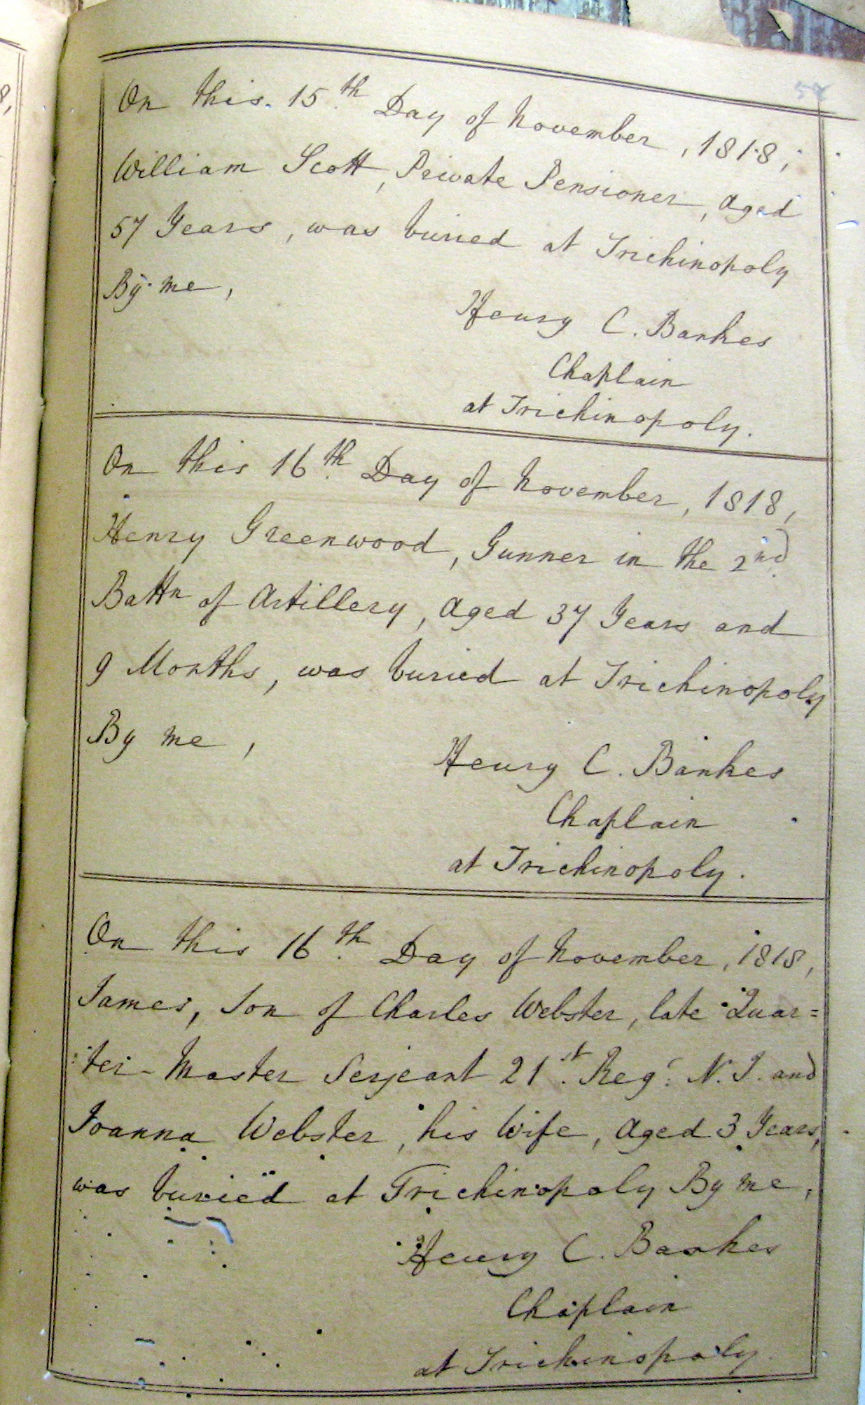 On this 15th Day of November, 1818,
William Scott, Private Pensioner, aged
57 Years, was buried at Trichinopoly
By me,
Henry C. Bankes
Chaplain
at Trichinopoly.
On this 16th Day of November, 1818,
Henry Greenwood, Gunner in the 2nd
Battn of Artillery, aged 37 Years and
9 Months, was buried at Trichinopoly
By me,
Henry C. Bankes
Chaplain
at Trichinopoly.
On this 16th Day of November, 1818,
James, Son of Charles Webster, late Quar=
ter-Master Serjeant 21st Regt N. I. and
Joanna Webster, his Wife, aged 3 Years,
was buried at Trichinopoly By me,
Henry C. Bankes
Chaplain
at Trichinopoly.